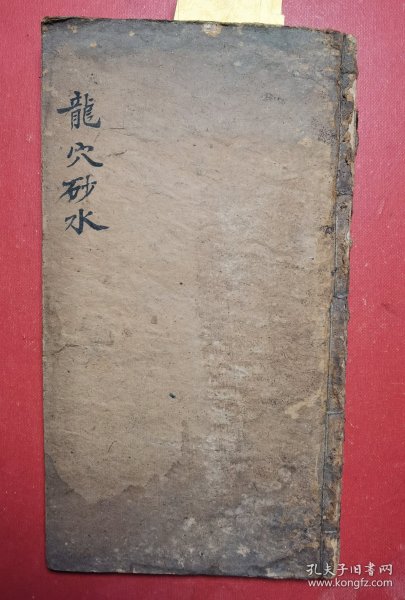 龍穴砂水
孔夫子旧书网
www.kongfz.com